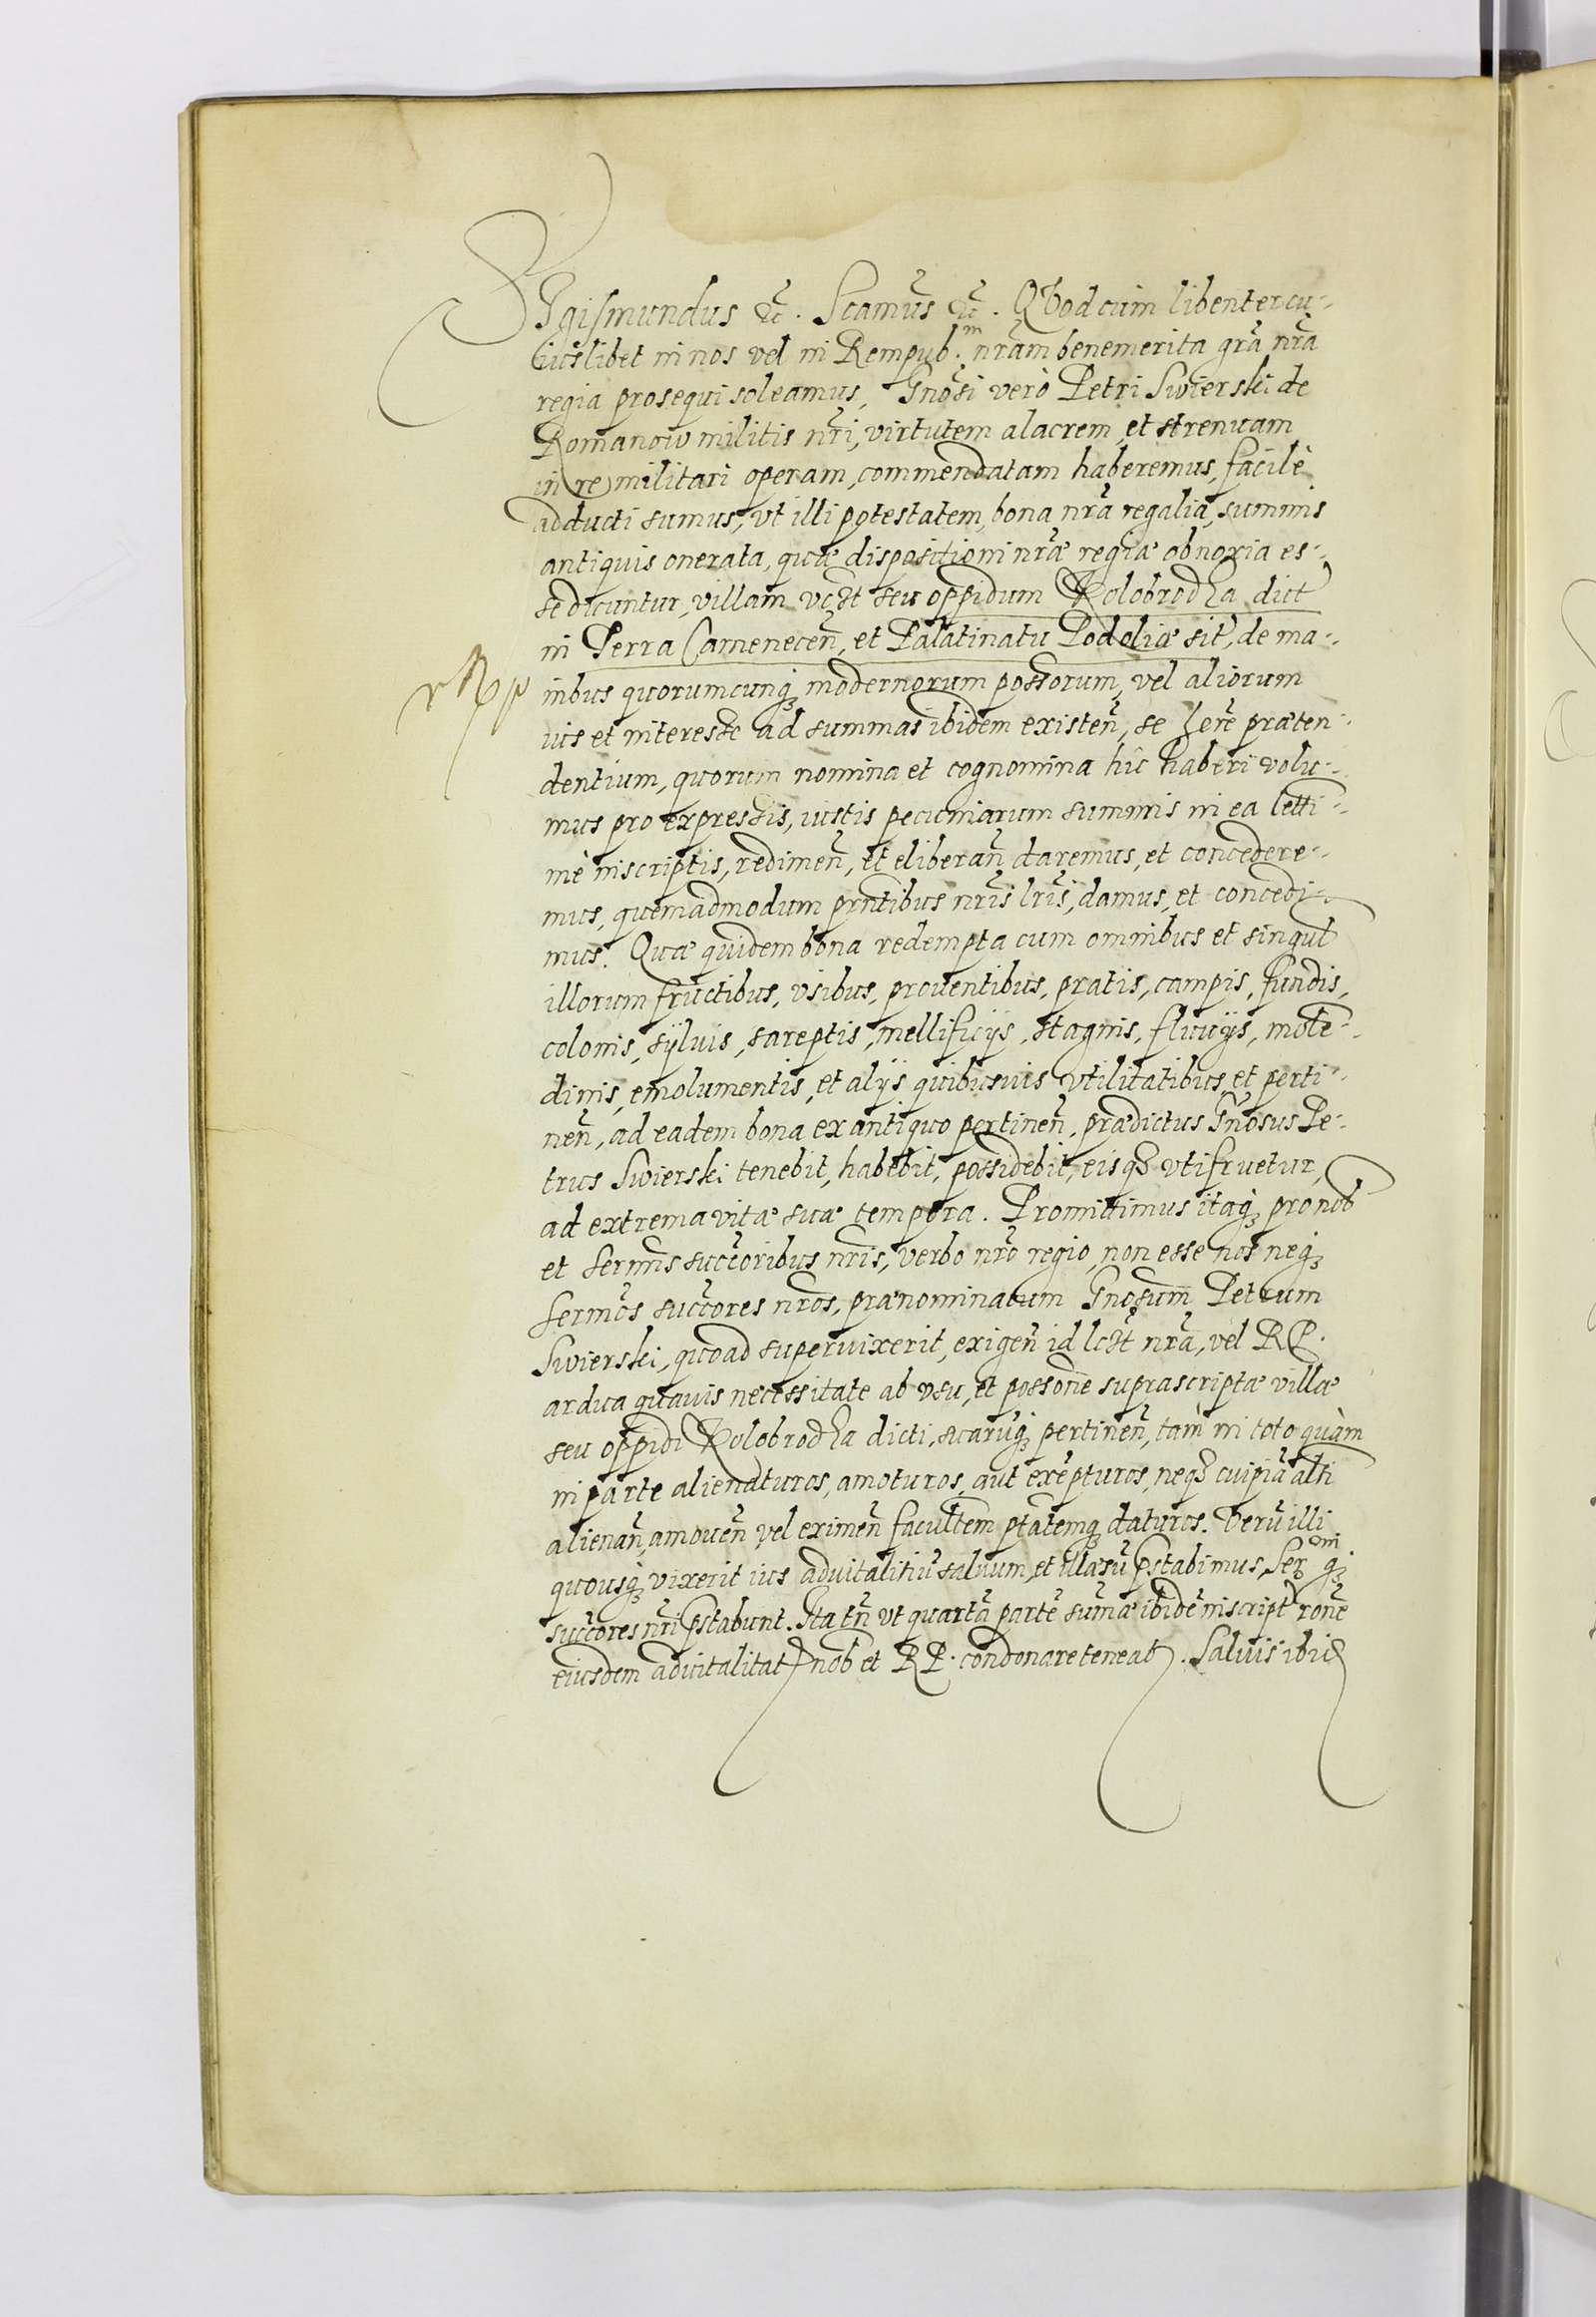 SIgismundus &c̃. Scamus̃ &c̃. QVod cùm libenter cu-
iuslibet in nos vel in Rempub.ᵐ nr̃am benemerita gr̃a nr̃a
regia prosequi soleamus, Gnosi verò Petri Swierski de
Romanow militis nr̃i, virtutem alacrem, et strenuam
in re militari operam, commendatam haberemus, facilè
adducti sumus, vt illi potestatem, bona nr̃a regalia, summis
antiquis onerata, quæ dispositioni nr̃æ regiæ obnoxia es-
se dicuntur, villam vclt seu oppidum Kolobrodka dict
in Terra Camenecen̄, et Palatinatu Podoliæ sit, de ma-
nibus quorumcunq; modernorum possorum, vel aliorum
ius et interesse ad summas ibidem existen̄, se here præten-
dentium, quorum nomina et cognomina hîc haberi volu-
mus pro expressis, iustis pecuniarum summis in ea letti-
mè inscriptis, redimen̄, et eliberan̄ daremus, et concedere-
mus, quemadmodum prntibus nr̃is lr̃is, damus, et concedi-
mus. Quæ quidem bona redempta cum omnibus et singul
illorum fructibus, vsibus, prouentibus, pratis, campis, fundis,
colonis, sÿluis, sareptis, mellificijs, stagnis, fluuijs, mole-
dinis, emolumentis, et alijs quibusuis vtilitatibus et perti-
nen̄, ad eadem bona ex antiquo pertinen̄, prædictus Gnosus Pe-
trus Swierski tenebit, habebit, possidebit, eisq; vtifruetur,
ad extrema vitæ suæ tempora. Promittimus itaq; pro nob
et Sermis succoribus nr̃is, verbo nr̃o regio, non esse nos neq;
Sermos succores nr̃os, prænominatum Gnosum Petrum
Swierski, quoad superuixerit, exigen̄ id lclt nr̃a, vel RP.
ardua quauis necessitate ab vsu, et possone suprascriptæ villæ
seu oppidi Kolobrodka dicti, suarūq; pertinen̄, tàm in toto quàm
in parte alienaturos, amoturos, aut exēpturos, neq; cuipiā alti
alienan̄, amouen̄ vel eximen̄ facultem ptatemq; daturos. Verū illi
quousq; vixerit ius aduitalitiū saluum, et illæsū pstabimus, Serᵐⁱ q;
succores nr̃i pstabunt. Ita tn̄ vt quartā partē sum̄æ ibidē inscript rone
eiusdem aduitalitat nob et RP. condonare teneat. Saluis ibid